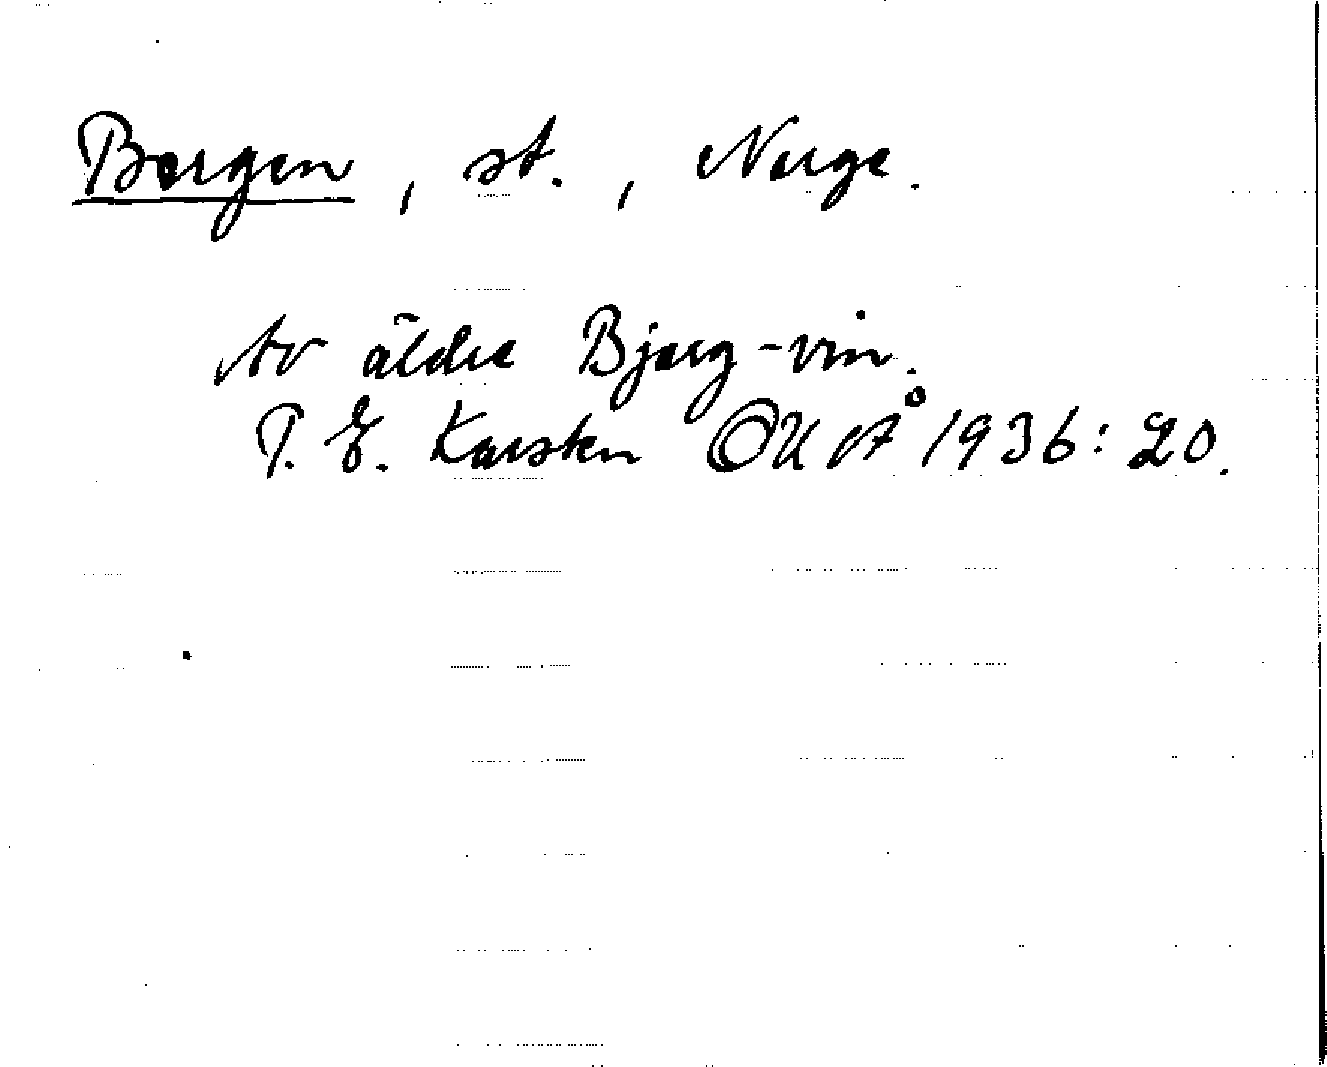 Bergen, st., Norge.
Av äldre Bjørg-vin.
T. E. Karsten OUÅ 1936: 20.